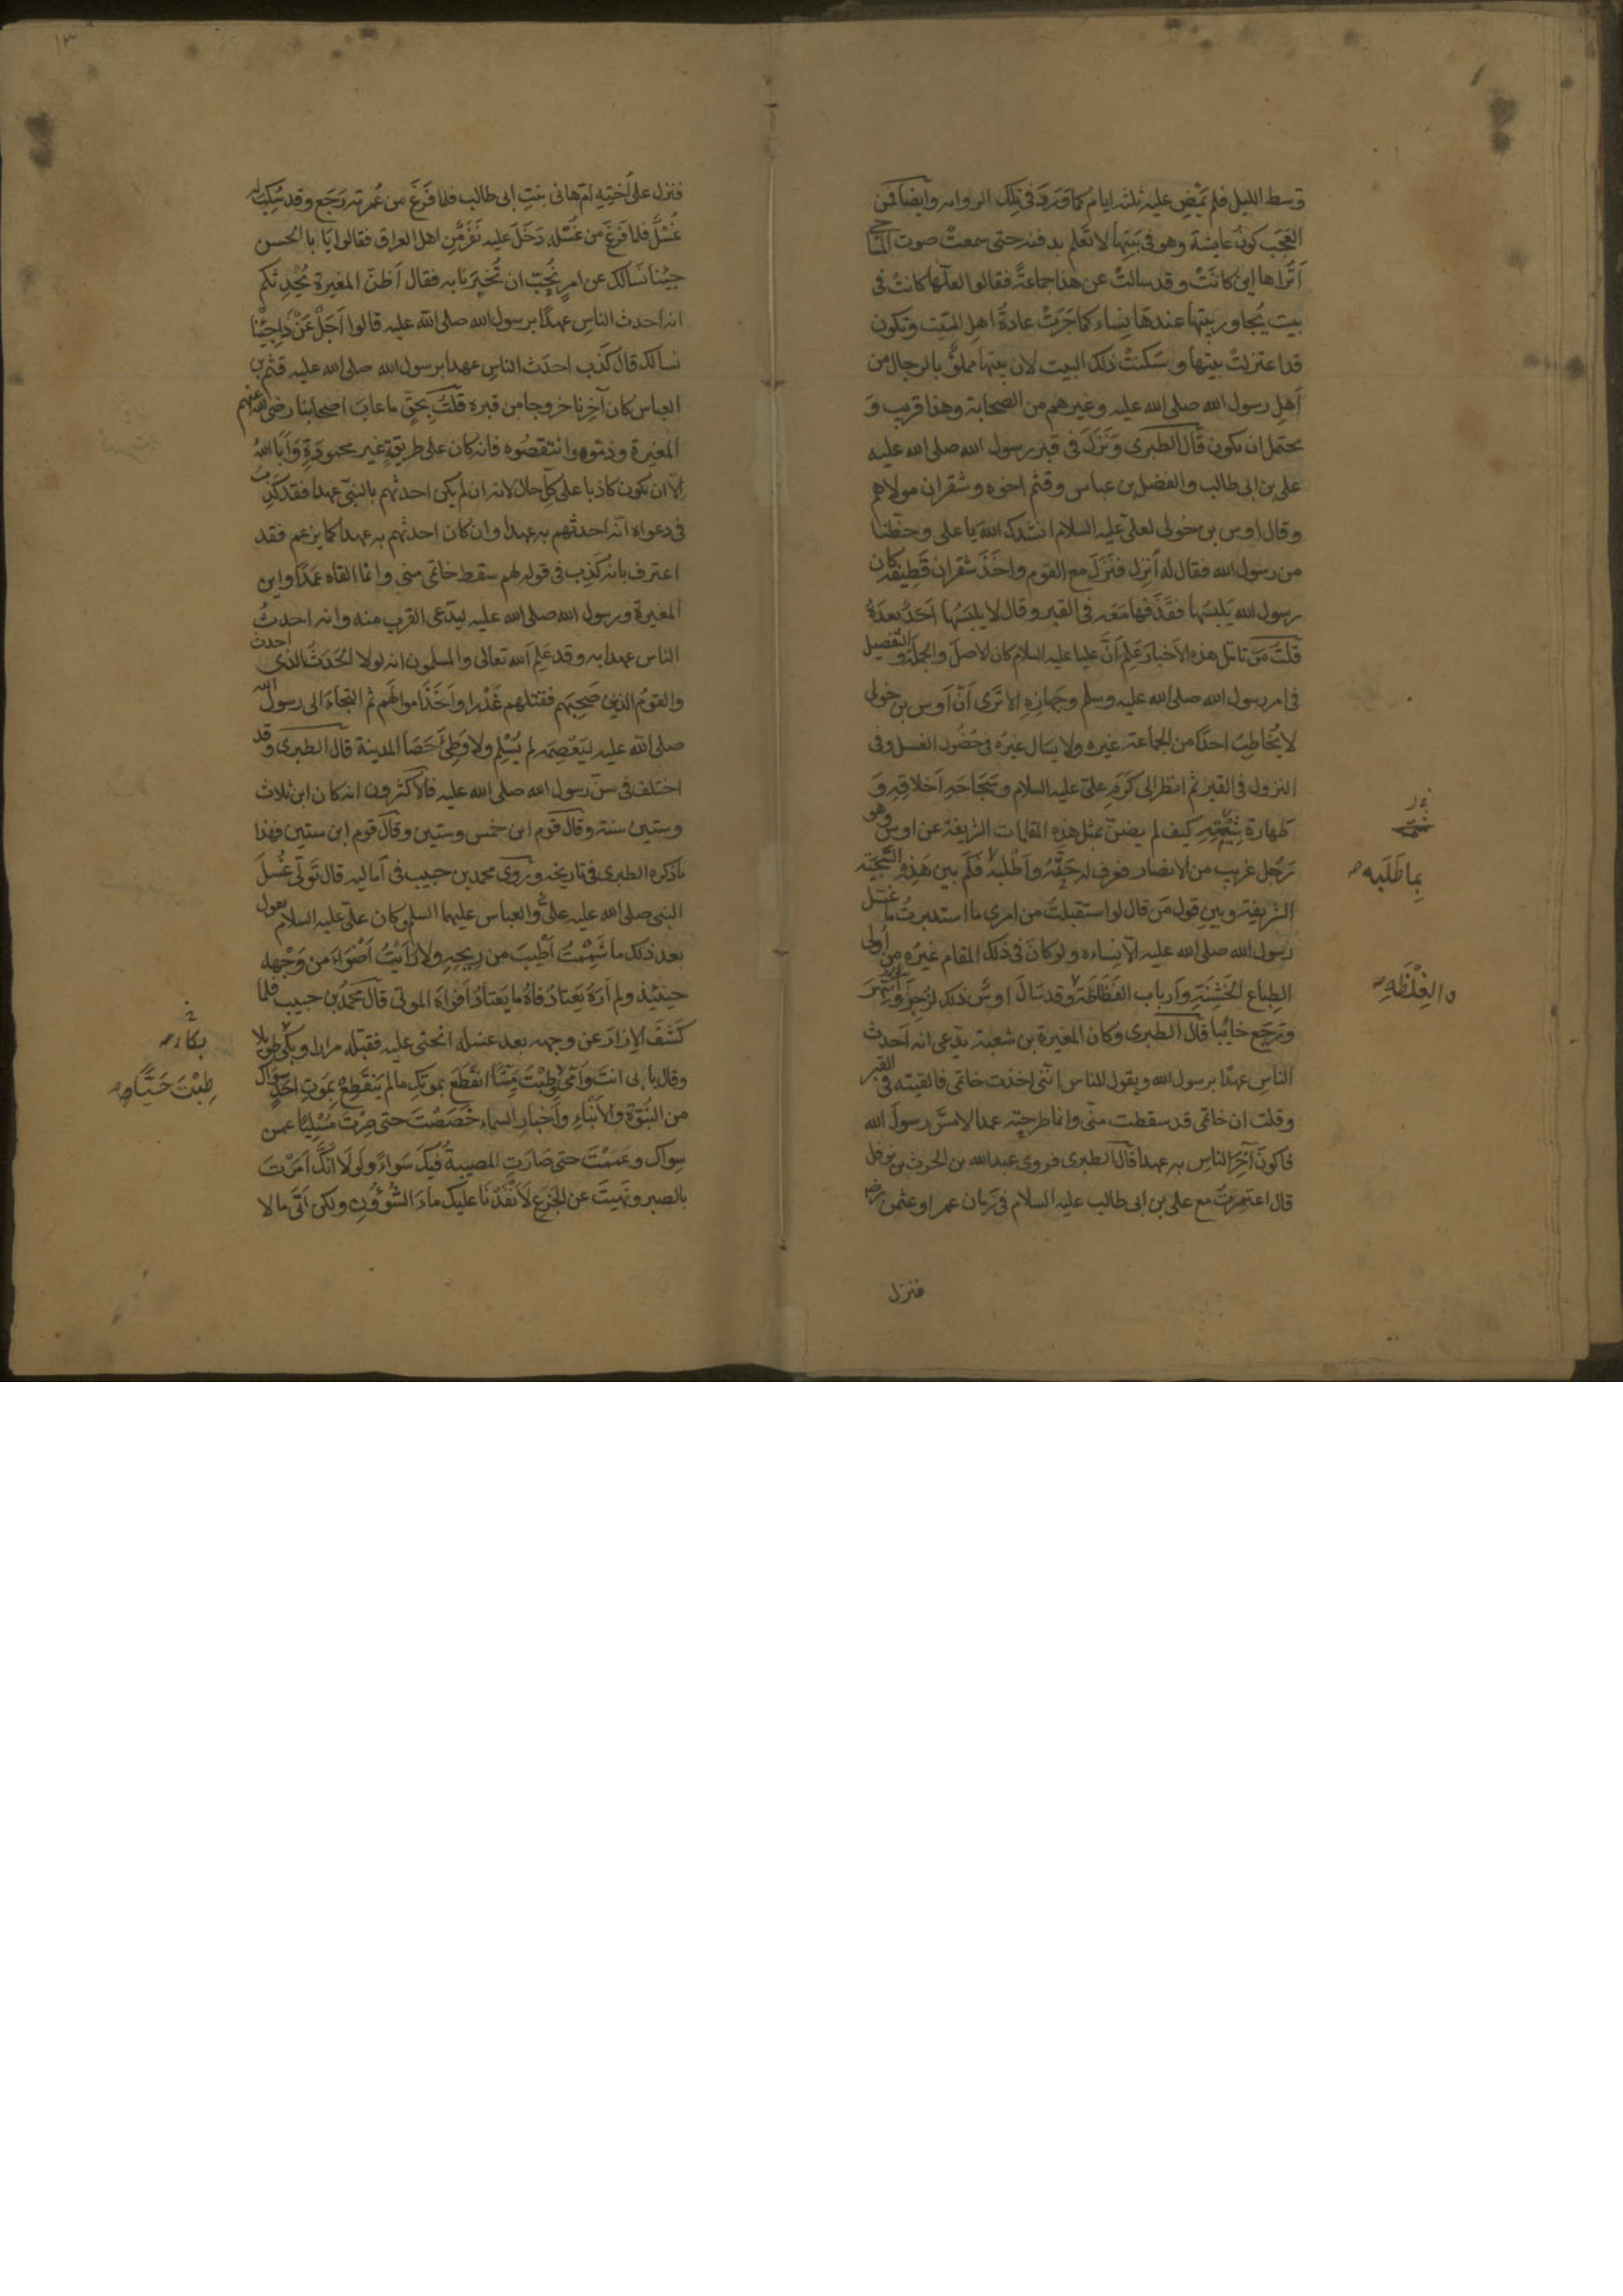 وسط الليل فلم يَمْضِ عليه ثلثة ايام كما وَرَدَ في تِلك الرواية وايضا فمن
العَجَب كونُ عايشة وهو في بَيتِها لا تَعلم بدفنه حتى سمعتْ صوت المساحي
اَتُراها اين كانَتْ وقد سالتُ عن هذا جماعةً فقالوا لعلّها كانتْ في
بيت يُجاور بيتها عندها نِساء كما جَرَتْ عادةُ اهلِ الميّت وتكون
قد اعتزلتْ بيتها وسَكنتْ ذلك البيت لان بيتها مملوٌّ بالرجال من
اَهلِ رسول الله صلى الله عليه وغيرهم من الصحابة وهذا قريب وَ
يحتمل ان يكون قال الطبرى وَنَزَلَ في قبر رسول الله صلى الله عليه
على بن ابى طالب والفضل بن عباس وقثم اخوه وشقران مولاهم
وقال اوس بن خولى لعلىّ عليه السلام انشدك الله يا على وحظّنا
من رسول الله فقال له اَنزِل فنَزَلَ مع القوم واخَذَ شقران قَطِيفة كان
رسول الله يَلبَسُها فقَذَفها مَعَه في القبر وقال لا يلبَسُها اَحَدٌ بعدَهُ
قلتُ مَن تامّل هذه الاَخبارَ عَلِم اَنَّ عليا عليه السلام كان الاصلَ والجملةَ والتفصيل
في امر رسول الله صلى الله عليه وسلم وجَهازِهِ الا تَرَى اَنّ اَوس بن خولى
لا يُخاطِبُ احدًا من الجماعة غيره ولا يسَال غيرَه في حُضُور الغسل وفى
النزول في القبر ثم انظر الى كَرَمِ علىّ عليه السلام وسَجَاحَةِ اَخلاقِهِ وَ
طهارة شِيْمَتِهِ كيف لم يضنّ بمثل هذه المقامات الشريفة عن اوس وهو
رَجُل غريب من الانصار فعرف له حَقّهُ واَطْلَبَه فكم بين هَذِه السَّجِيّة
الشريفة وبين قول مَن قال لو استقبلتُ من امرى ما استدبرتُ ما غسّل
رسول الله صلى الله عليه الّا نِساءه ولو كانَ في ذلك المقام غيرُه من اُولى
الطِباع الخَشِنَةِ وَاَرباب الفَظَاظَة وقد سَالَ اوسٌ ذلك لزُجِرَ وانتُهِرَ
وَرَجَع خايبًا قال الطبرى وكان المغيرة بن شعبة يدّعى انه اَحدث
الناسِ عهدًا برسول الله ويقول للناس انّنى اخذت خاتمى فالقيته في القبر
وقلت ان خاتمى قد سقطت منّى وانما طرحتُه عمدا لامسّ رسولَ الله
فاكونَ آخِرَ الناس به عهدا قال الطبرى فروى عبد الله بن الحرث بن نوفل
قال اعتمرتُ مع على بن ابى طالب عليه السلام في زَمان عمر او عثمن
فنزل
شيمته
بِما طَلَبَه صح
والغِلْظَةِ صح
١٣
فنزل على اُختِهِ اُمّ هانى بنتِ ابى طالب فلما فَرَغَ من عُمرته رَجَع وقد سُكِبَ له
غُسْلٌ فلما فَرَغَ من غُسْلِه دَخَلَ عليه نَفَرٌ مِّن اهل العراق فقالوا يَا با الحسن
جيْنا نَسالك عن امرٍ نُحِبّ ان تُخبِرَنا به فقال اَظنّ المغيرة يُحدِثكم
انه اَحدث الناس عهدًا برسول الله صلى الله عليه قالوا اَجَلْ عَنْ ذَا جِيْنا
نسالك قال كَذَبَ احدَث الناسِ عهدا برسول الله صلى الله عليه قثم بن
العباس كان آخِرنا خروجا من قبره قلتُ بحقّ ما عابَ اصحابنا رضى الله عنهم
المغيرة وذمّوه وانتقصُوه فانه كان على طريقةٍ غير محمودَةٍ وَاَبَا اللهُ
اِلّا ان يكون كاذبا على كلّ حال لانه ان لم يكن احدثهم بالنبىّ عهدا فقد كَذَبَ
في دعواه انّه احدثهم به عهدا وان كان احدثهم به عهدا كما يزعم فقد
اعترف بانه كَذَب في قوله لهم سقط خاتمى منى وانما القاه عَمدًا واين
المغيرة ورسول الله صلى الله عليه ليدّعى القرب منه وانه احدثُ
الناس عهدا به وقد عَلِم الله تعالى والمسلمون انه لولا الحَدَثُ الذى احدث
والقومُ الذين صَحِبَهم فقتلهم غَدْرا واَخَذَ اموالَهم ثم التجَاءَ الى رسول الله
صلى الله عليه ليَعْصِمَه لم يُسْلِم ولا وَطِئَ حَصَا المدينة قال الطبرى وقد
اختلف في سنّ رسول الله صلى الله عليه فالاكثرون انه كان ابن ثلاث
وستين سنة وقال قوم ابن خمس وستين وقال قوم ابن ستين فهذا
ماذكره الطبرى في تاريخه ورُوى محمد بن حبيب في اَماليه قال تَولّى غُسْلَ
النبى صلى الله عليه علىٌّ والعباس عليهما السلم وكان علىّ عليه السلام يقول
بعد ذلك ما شَمِمْتُ اَطْيبَ من رِيحِهِ ولا رَاَيْتُ اَضْوَاءَ من وَجْهه
حينَئِذ ولم اَرَهُ يَعتادُ فاهُ ما يَعتادُ اَفواهَ الموتى قال محمدُ بن حبيب فلما
كَشَفَ الاِزارَ عن وجهه بعد غسله انحنى عليه فقبّله مرارا وبكى طويلا
وقال بابى انتَ وَاُمّى طِبْتَ مَيِّتًا انقطَع بموتك ما لم يَنقَطِعْ بِمَوتِ احَدٍ سِوَاك
من النُبُوّة والاَنْبَاءِ واَخبارِ السماء خَصَصْتَ حتى صِرْتَ مُسْلِيًا عمن
سِواك وعَمَمْتَ حتى صَارَت المصيبةُ فيكَ سَواءً ولَولَا اَنّكَ اَمَرْتَ
بالصبر ونَهَيتَ عن الجَزَعِ لَاَنْفَدْنَا عليك ماءَ الشُؤُونِ ولكن اَتى ما لا
بكاءً
طِبْتَ حَيًّا و صح